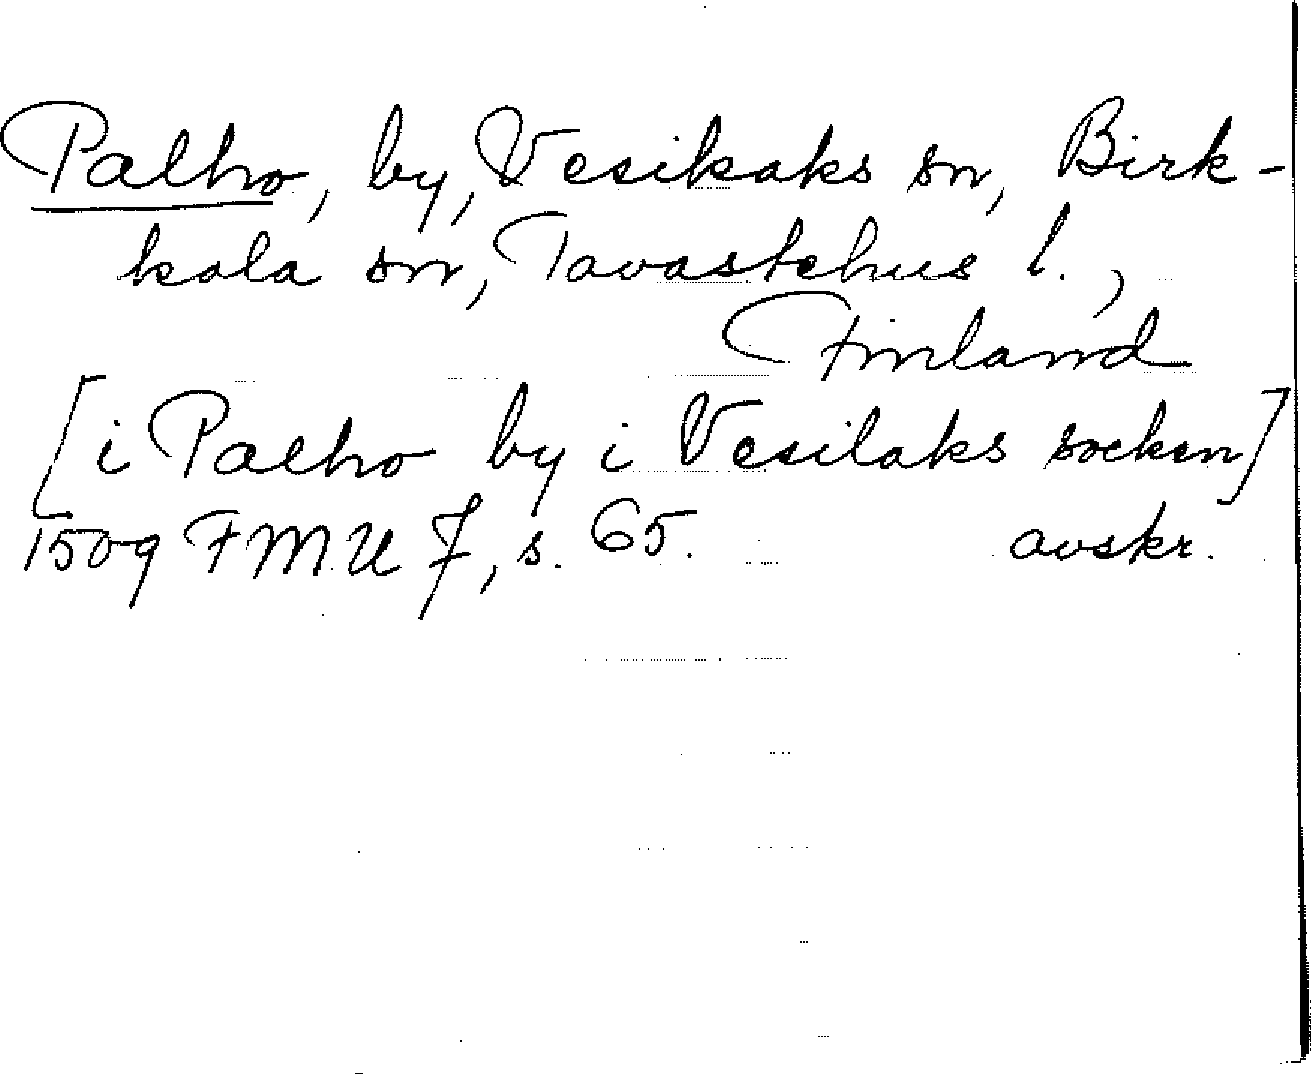 Palho, by, Vesikaks sn, Birk-
kala sn, Tavastehus l.,
Finland
[i Palho by i Vesilaks socken]
1509 FMU 7, s. 65. avskr.